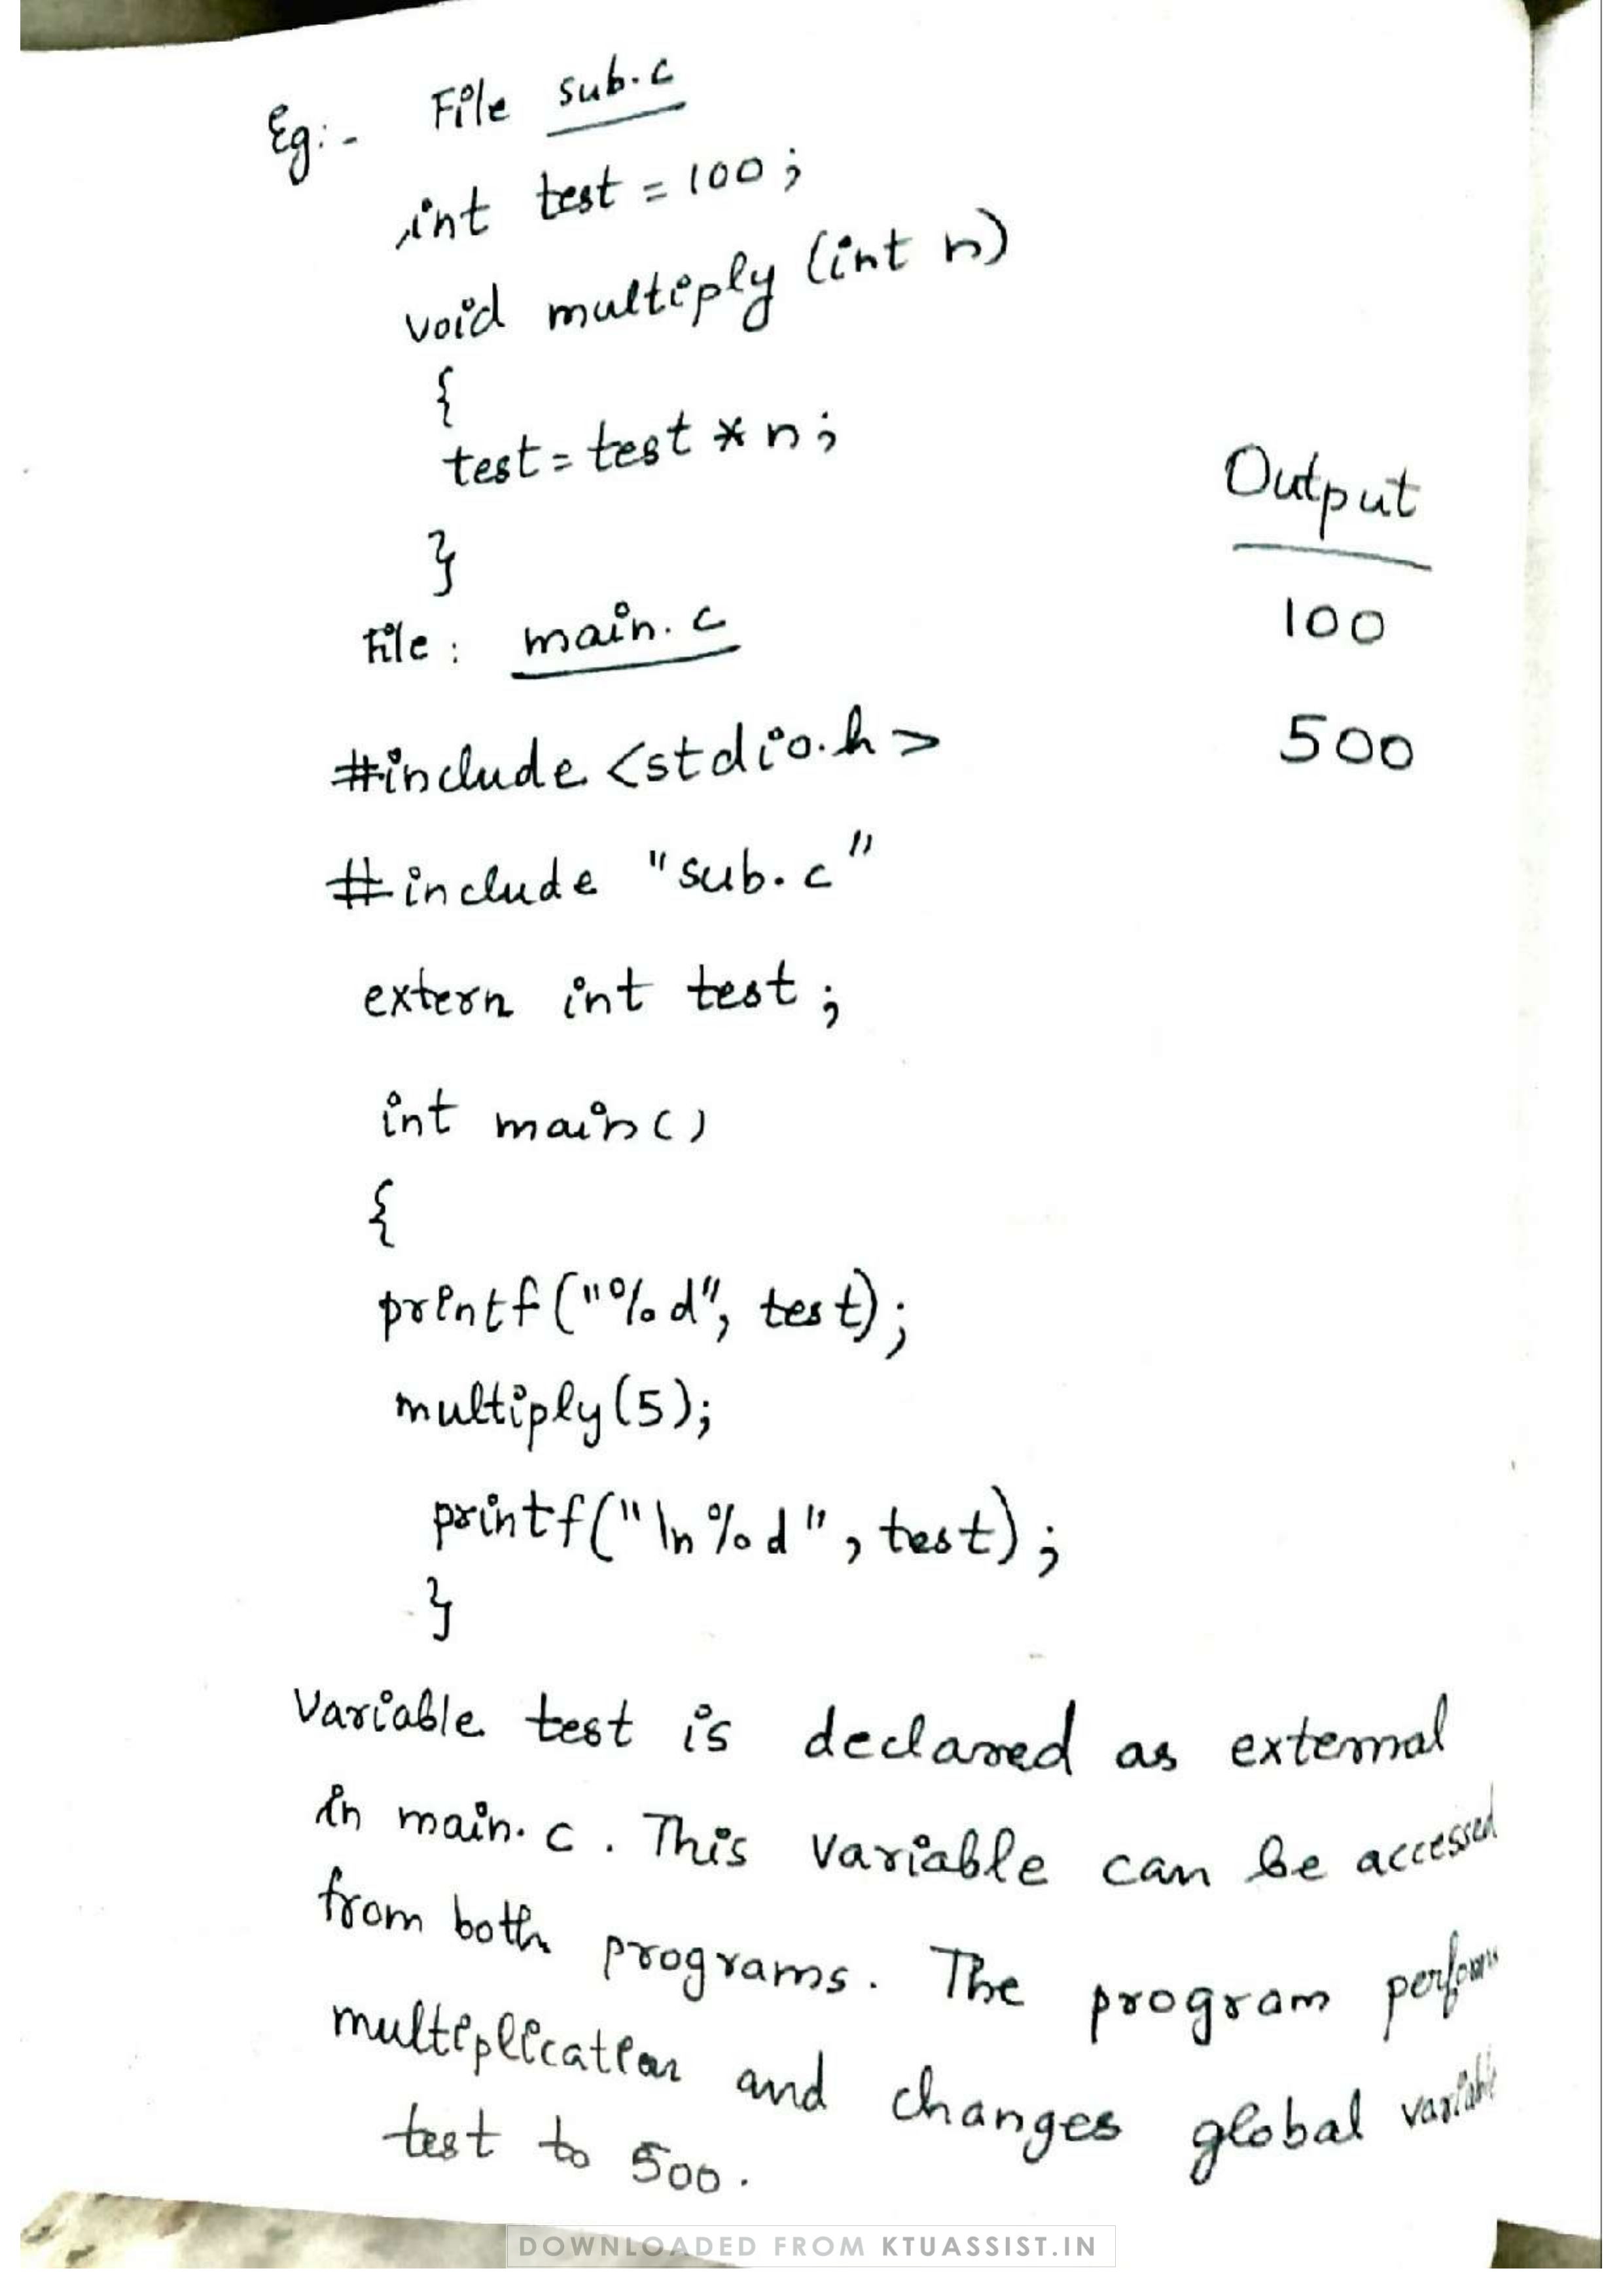 Eg:- File sub.c
int test = 100;
void multiply (int n)
{
test = test * n;
}
Output
100
500
File: main.c
#include <stdio.h>
#include "sub.c"
extern int test;
int main()
{
printf("%d", test);
multiply(5);
printf("\n%d", test);
}
Variable test is declared as external
in main.c. This variable can be accessed
from both programs. The program perform
multiplication and changes global variable
test to 500.
DOWNLOADED FROM KTUASSIST.IN